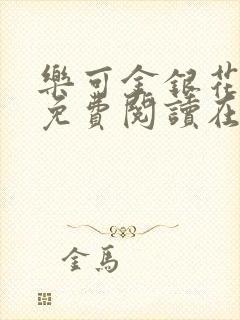 樂可金銀花
免費閱讀在
金馬